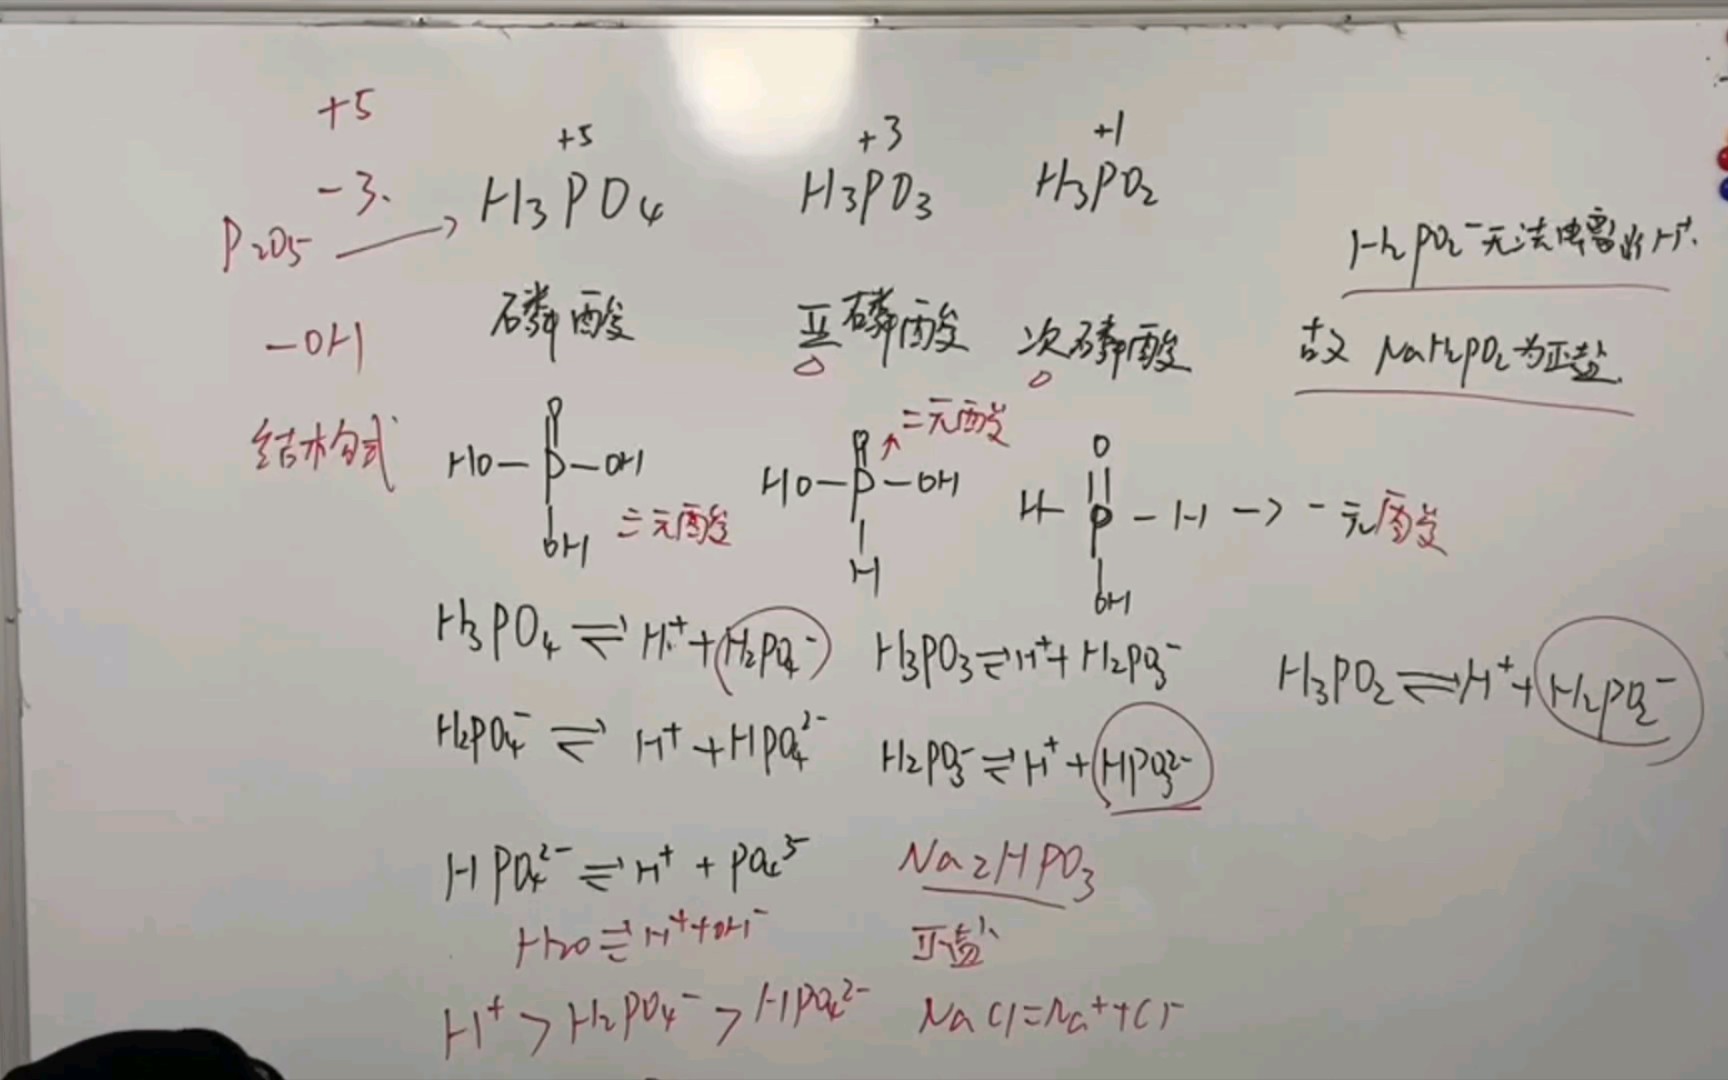 +5
-3.
P2O5 →
-OH
结构式
+5
H3PO4
+3
H3PO3
+1
H3PO2
磷酸
亚磷酸
次磷酸
H2PO2^-无法电离出H+.
故 NaH2PO2为正盐.
HO-P-OH
OH
三元酸
O
HO-P-OH
H
二元酸
O
H-P-H → 一元酸
OH
H3PO4 ⇌ H+ + H2PO4^-
H2PO4^- ⇌ H+ + HPO4^2-
HPO4^2- ⇌ H+ + PO4^3-
H2O ⇌ H+ + OH^-
H+ > H2PO4^- > HPO4^2-
H3PO3 ⇌ H+ + H2PO3^-
H2PO3^- ⇌ H+ + HPO3^2-
Na2HPO3
正盐
NaCl=Na+ + Cl^-
H3PO2 ⇌ H+ + H2PO2^-